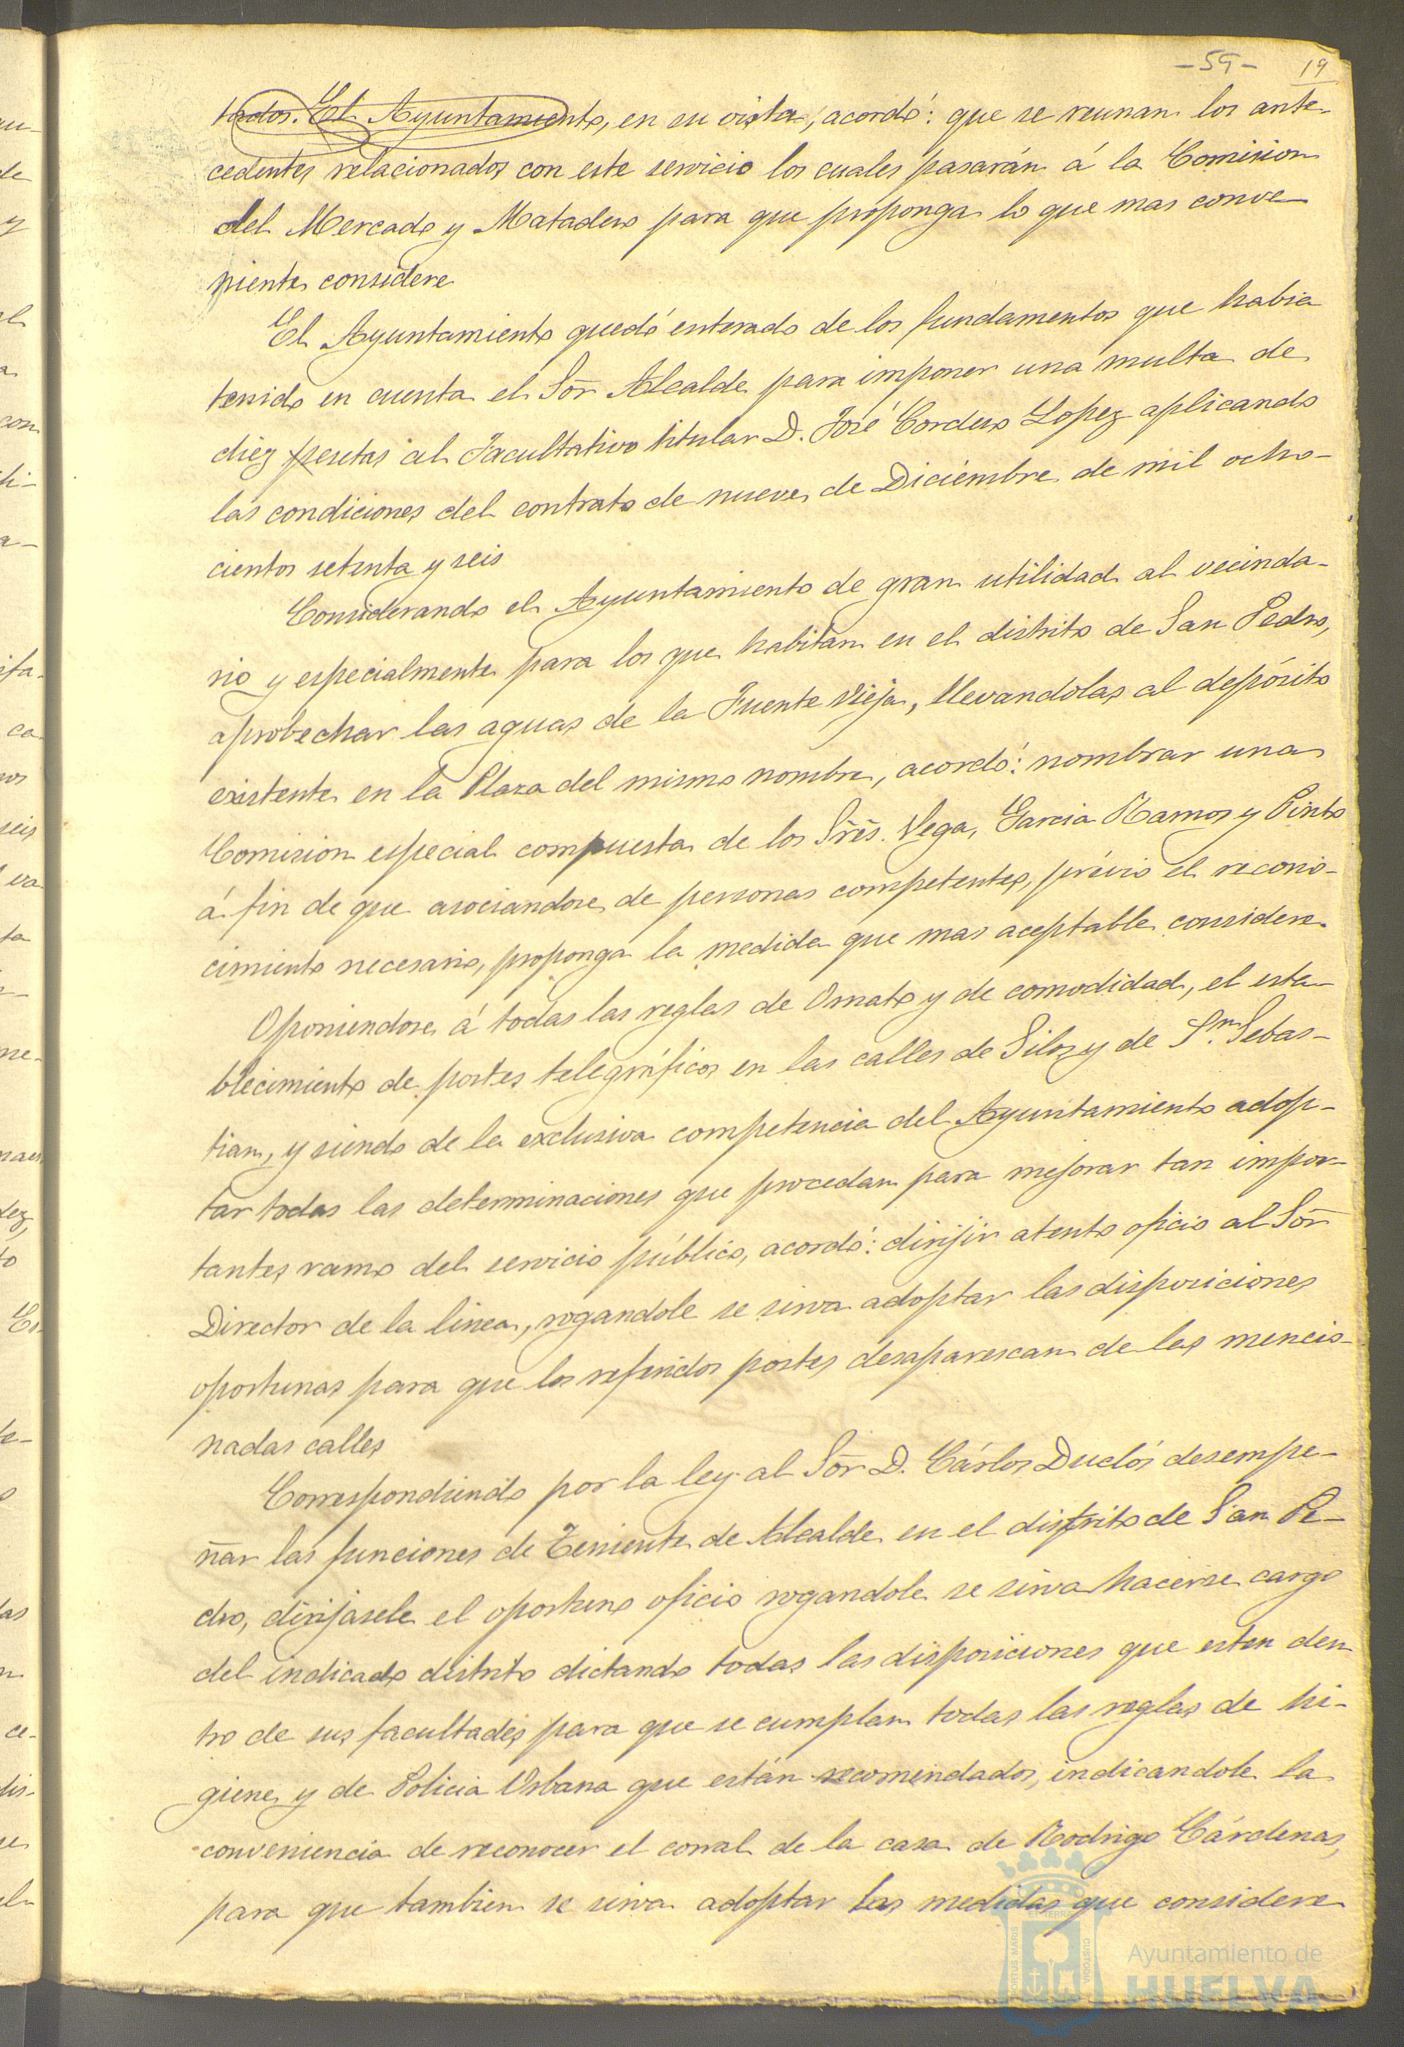 -59- 19
tados. El Ayuntamiento, en su vista, acordó: que se reunan los ante-
cedentes relacionados con este servicio los cuales pasarán á la Comision
del Mercado y Matadero para que proponga lo que mas conve
niente considere
El Ayuntamiento quedó enterado de los fundamentos que habia
tenido en cuenta el Sor Alcalde para imponer una multa de
diez pesetas al Facultativo titular D. José Cordero Lopez aplicando
las condiciones del contrato de nueve de Diciembre de mil ocho-
cientos setenta y seis
Considerando el Ayuntamiento de gran utilidad al vecinda-
rio y especialmente para los que habitan en el distrito de San Pedro,
aprobechar las aguas de la Fuente vieja, llevandolas al depósito
existente en la Plaza del mismo nombre, acordó: nombrar una
Comision especial compuesta de los Srēs. Vega, Garcia Ramos y Pinto
á fin de que asociandose de personas competentes, prévio el recono-
cimiento necesario, proponga la medida que mas aceptable considere.
Oponiendose á todas las reglas de Ornato y de comodidad, el esta-
blecimiento de postes telegráficos en las calles de Silos y de Sn. Sebas-
tian, y siendo de la exclusiva competencia del Ayuntamiento adop-
tar todas las determinaciones que procedan para mejorar tan impor-
tantes ramo del servicio público, acordó: dirijir atento oficio al Sor
Director de la linea, rogandole se sirva adoptar las disposiciones
oportunas para que los referidos postes desaparescan de las mencio-
nadas calles
Correspondiendo por la ley al Sor D. Cárlos Duclós desempe-
ñar las funciones de Teniente de Alcalde en el distrito de San Pe-
dro, dirijasele el oportuno oficio rogandole se sirva hacerse cargo
del indicado distrito dictando todas las disposiciones que esten den
tro de sus facultades para que se cumplan todas las reglas de hi-
giene y de Policia Urbana que están recomendados, indicandole la
conveniencia de reconocer el corral de la casa de Rodrigo Cárdenas,
para que tambien se sirva adoptar las medidas que considere
Ayuntamiento de
HUELVA